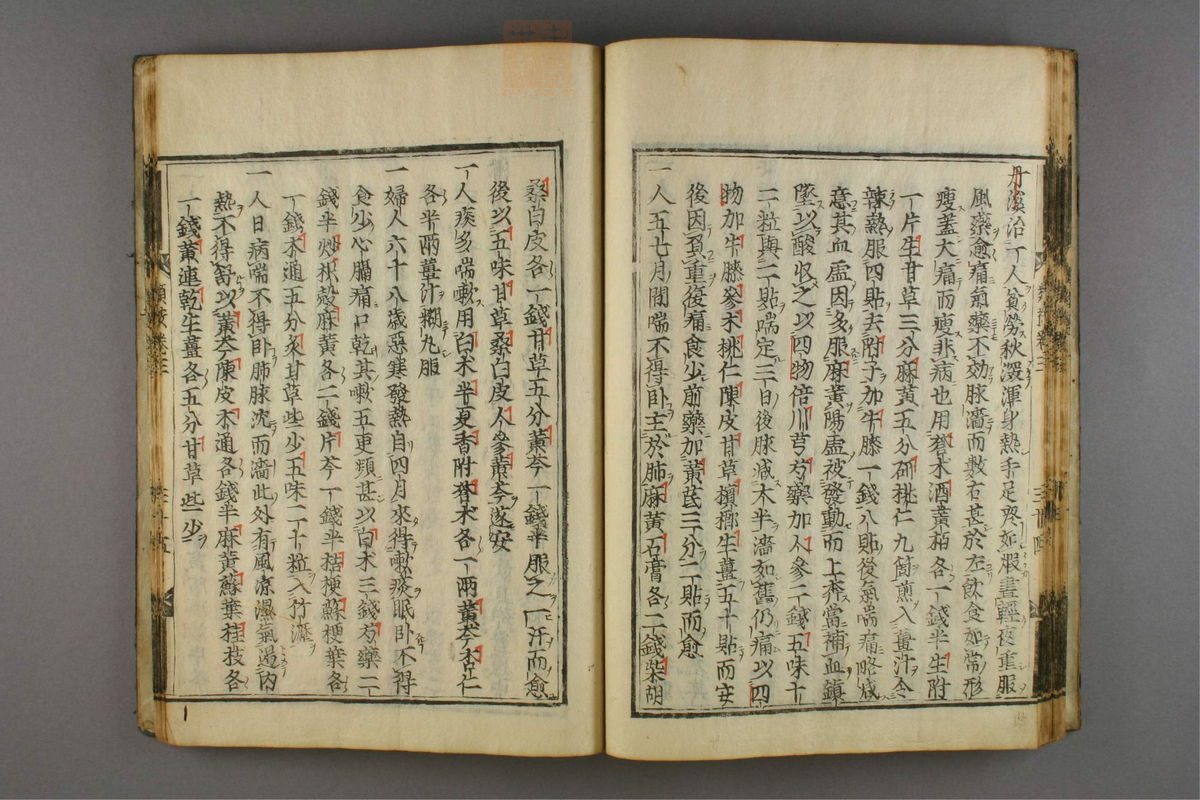 丹溪治一人貧勞秋深渾身熱手足疼如煅晝輕夜重服
風藥愈痛氣藥不効脉濇而數右甚於左飲食如常形
瘦蓋大痛而瘦非病也用蒼朮酒黃栢各一錢半生附
一片生甘草三分麻黃五分研桃仁九箇煎入薑汁令
辣熱服四貼去附子加牛膝一錢八貼後氣喘痛略減
意其血虛因多服麻黃陽虛被發動而上奔當補血鎮
墜以酸収之以四物倍川芎芍藥加人參二錢五味十
二粒與二貼喘定三日後脉减大半濇如舊仍痛以四
物加牛膝參朮桃仁陳皮甘草檳榔生薑五十貼而安
後因負重復痛食少前藥加黃芪三分二貼而愈
一人五七月間喘不得卧主於肺麻黃石膏各二錢柴胡
桑白皮各一錢甘草五分黃芩一錢半服之一汗而愈
後以五味甘草桑白皮人參黃芩遂安
一人痰多喘嗽用白朮半夏香附蒼朮各一兩黃芩杏仁
各半兩薑汁糊丸服
一婦人六十八歲惡寒發熱自四月來得嗽痰眠卧不得
食少心膈痛口乾其嗽五更頻甚以白朮三錢芍藥二
錢半炒枳殼麻黃各二錢片芩一錢半桔梗蘇梗葉各
一錢木通五分炙甘草些少五味二十粒入竹瀝
一人日病喘不得卧肺脉沈而濇此外有風凉濕氣遏内
熱不得舒以黃芩陳皮木通各錢半麻黃蘇葉桂枝各
一錢黃連乾生薑各五分甘草些少